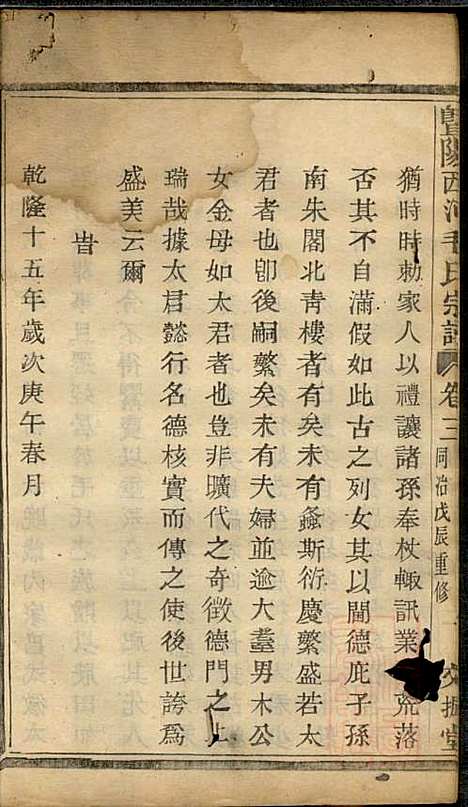 暨陽西河毛氏宗譜 卷三 同治戊辰重修 一
猶時時勅家人以禮讓諸孫奉杖輙訊業荒落
否其不自滿假如此古之列女其以閫德庇子孫
南朱閣北靑樓者有矣未有螽斯衍慶繁盛若太
君者也卽後嗣繁矣未有夫婦並逾大耋男木公
女金母如太君者也豈非曠代之奇徵德門之上
瑞哉據太君懿行名德核實而傳之使後世誇爲
盛美云爾
旹
乾隆十五年歲次庚午春月